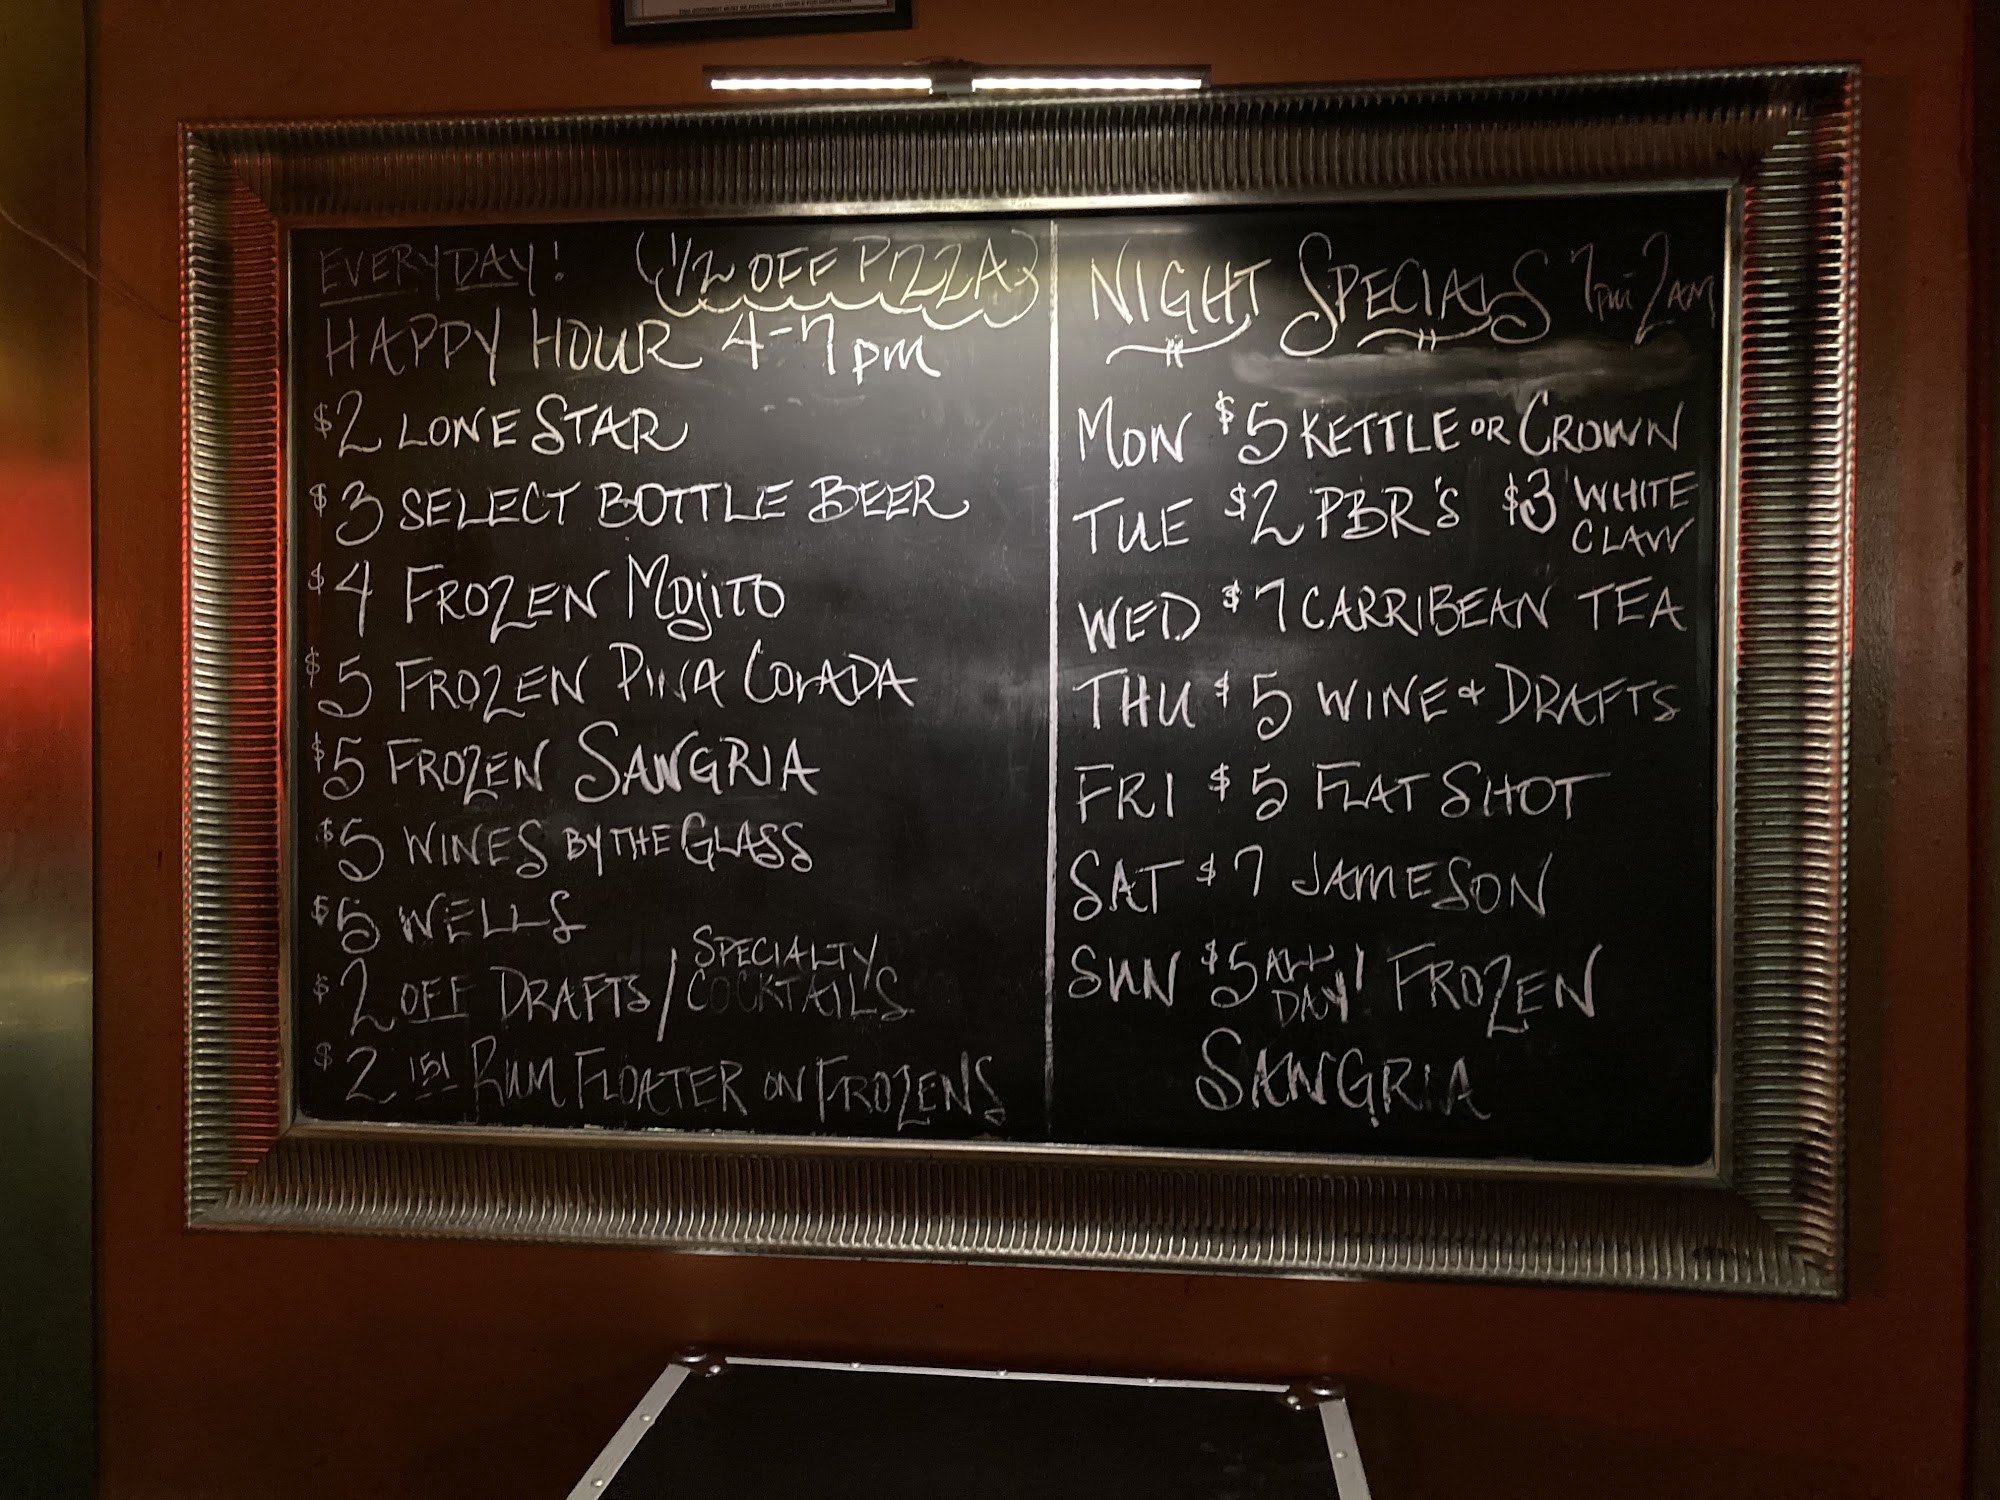 EVERYDAY! 1/2 OFF PIZZA
HAPPY HOUR 4-7pm
$2 LONE STAR
$3 SELECT BOTTLE BEER
$4 FROZEN MOJITO
$5 FROZEN PINA COLADA
$5 FROZEN SANGRIA
$5 WINES BY THE GLASS
$5 WELLS
$2 OFF DRAFTS/ SPECIALTY COCKTAILS
$2 151 RUM FLOATER ON FROZENS
NIGHT SPECIALS 7pm-2AM
MON $5 KETTLE OR CROWN
TUE $2 PBR'S $3 WHITE CLAW
WED $7 CARRIBEAN TEA
THU $5 WINE + DRAFTS
FRI $5 FLAT SHOT
SAT $7 JAMESON
SUN $5 ALL DAY! FROZEN
SANGRIA